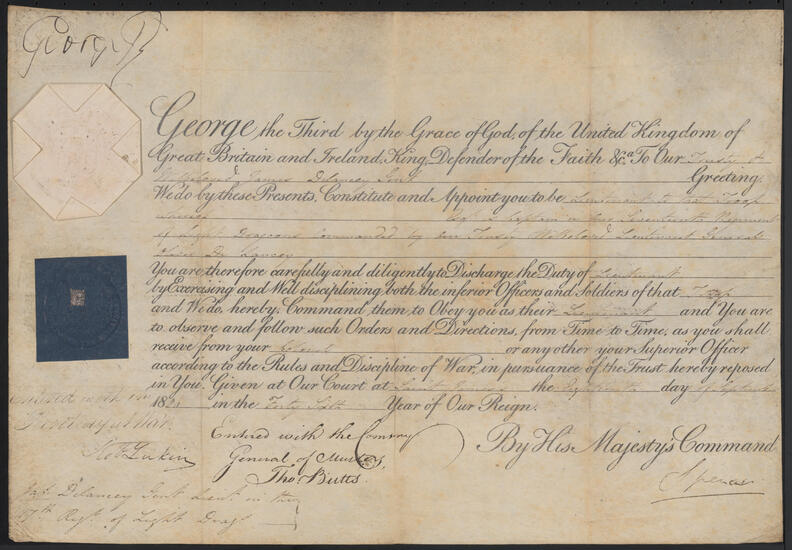 George R
George the Third by the Grace of God, of the United Kingdom of
Great Britain and Ireland, King, Defender of the Faith &c.a To Our Trusty &
Wellbeloved James Delancey Gent Greeting.
We do by these Presents, Constitute and Appoint you to be Lieutenant to that Troop
whereof Esqr is Captain in Our Seventeenth Regiment
of Light Dragoons Commanded by Our Trusty & Wellbeloved Lieutenant General
Oliver De Lancey
You are therefore carefully and diligently to Discharge the Duty of Lieutenant
by Exercising and Well disciplining both the inferior Officers and Soldiers of that Troop
and We do, hereby, Command them to Obey you as their Lieutenant and You are
to observe and follow such Orders and Directions, from Time to Time, as you shall
receive from your Colonel or any other your Superior Officer
according to the Rules and Discipline of War, in pursuance of the Trust hereby reposed
in You. Given at Our Court at Saint James's the day of September
180 in the Forty Year of Our Reign.
By His Majesty's Command
Spencer
Entered with the
Secretary at War
Entered with the Commry
General of Musters,
Thos Butts
Jas Delancey Gent Lieut in the
17th Regt of Light Drags